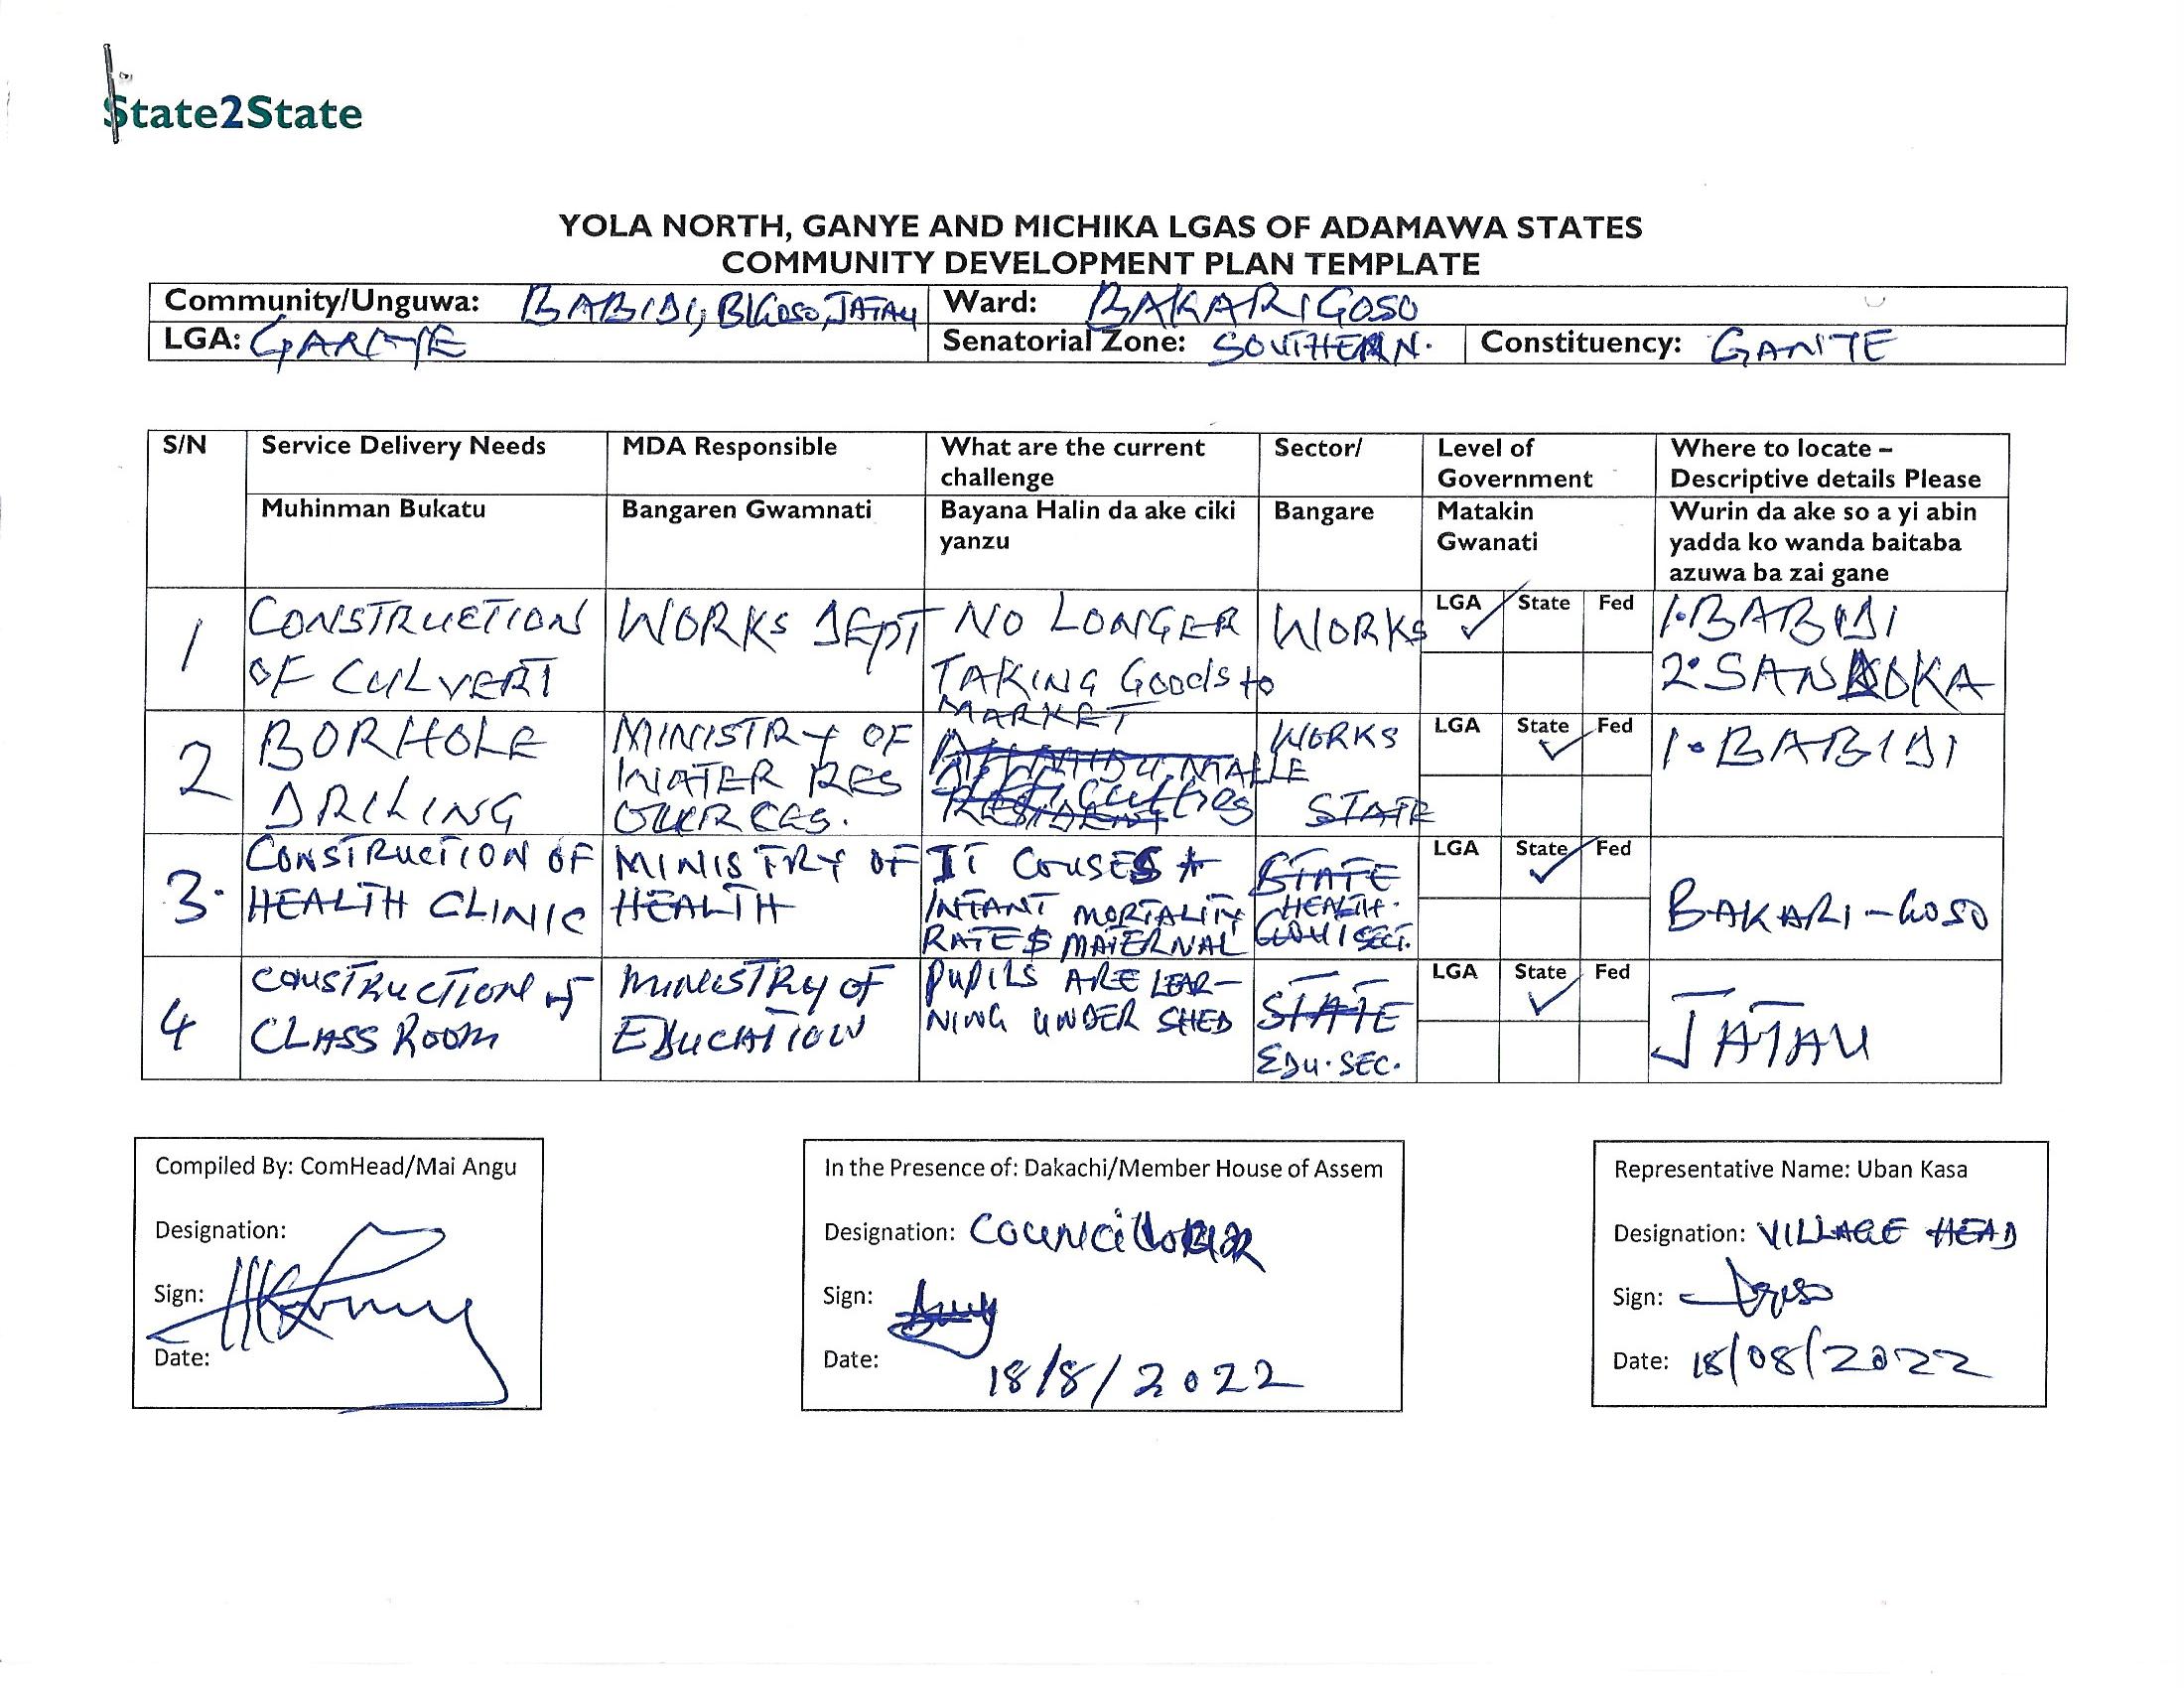 State2State
YOLA NORTH, GANYE AND MICHIKA LGAS OF ADAMAWA STATES
COMMUNITY DEVELOPMENT PLAN TEMPLATE
Community/Unguwa: BABIDI, B/GOSO, JATAU Ward: BAKARI GOSO
LGA: Senatorial Zone: SOUTHERN. Constituency: GANYE
S/N Service Delivery Needs MDA Responsible What are the current challenge Sector/ Level of Government Where to locate – Descriptive details Please
Muhinman Bukatu Bangaren Gwamnati Bayana Halin da ake ciki yanzu Bangare Matakin Gwanati Wurin da ake so a yi abin yadda ko wanda baitaba azuwa ba zai gane
1 CONSTRUCTION OF CULVERT WORKS DEPT NO LONGER TAKING Goods to MARKET WORKS LGA ✓ State Fed 1. BABIDI 2. SANDOKA
2 BORHOLE DRILING MINISTRY OF WATER RES OUERCES. WORKS STATE LGA State ✓ Fed 1. BABIDI
3. CONSTRUCTION OF HEALTH CLINIC MINISTRY OF HEALTH IT COUSES INFANT MORTALITY RATE $ MATERNAL STATE HEALTH. SECT. LGA State ✓ Fed BAKARI-GOSO
4 CONSTRUCTION of CLASS ROOM MINISTRY OF EDUCATION PUPILS ARE LEAR- NING UNDER SHED STATE EDU. SEC. LGA State ✓ Fed JATAU
Compiled By: ComHead/Mai Angu
Designation:
Sign:
Date:
In the Presence of: Dakachi/Member House of Assem
Designation: Councillor
Sign:
Date: 18/8/2022
Representative Name: Uban Kasa
Designation: VILLAGE HEAD
Sign:
Date: 18/08/2022